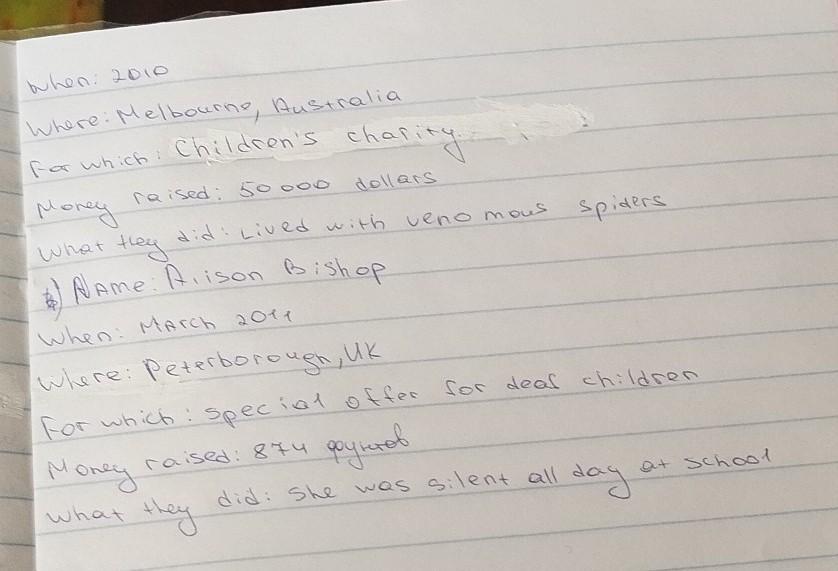 When: 2010
Where: Melbourne, Australia
For which: Children's charity
Money raised: 50 000 dollars
What they did: Lived with venomous spiders
Name: Alison Bishop
When: March 2011
Where: Peterborough, UK
For which: special offer for deaf children
Money raised: 874 фунтов
What they did: she was silent all day at school